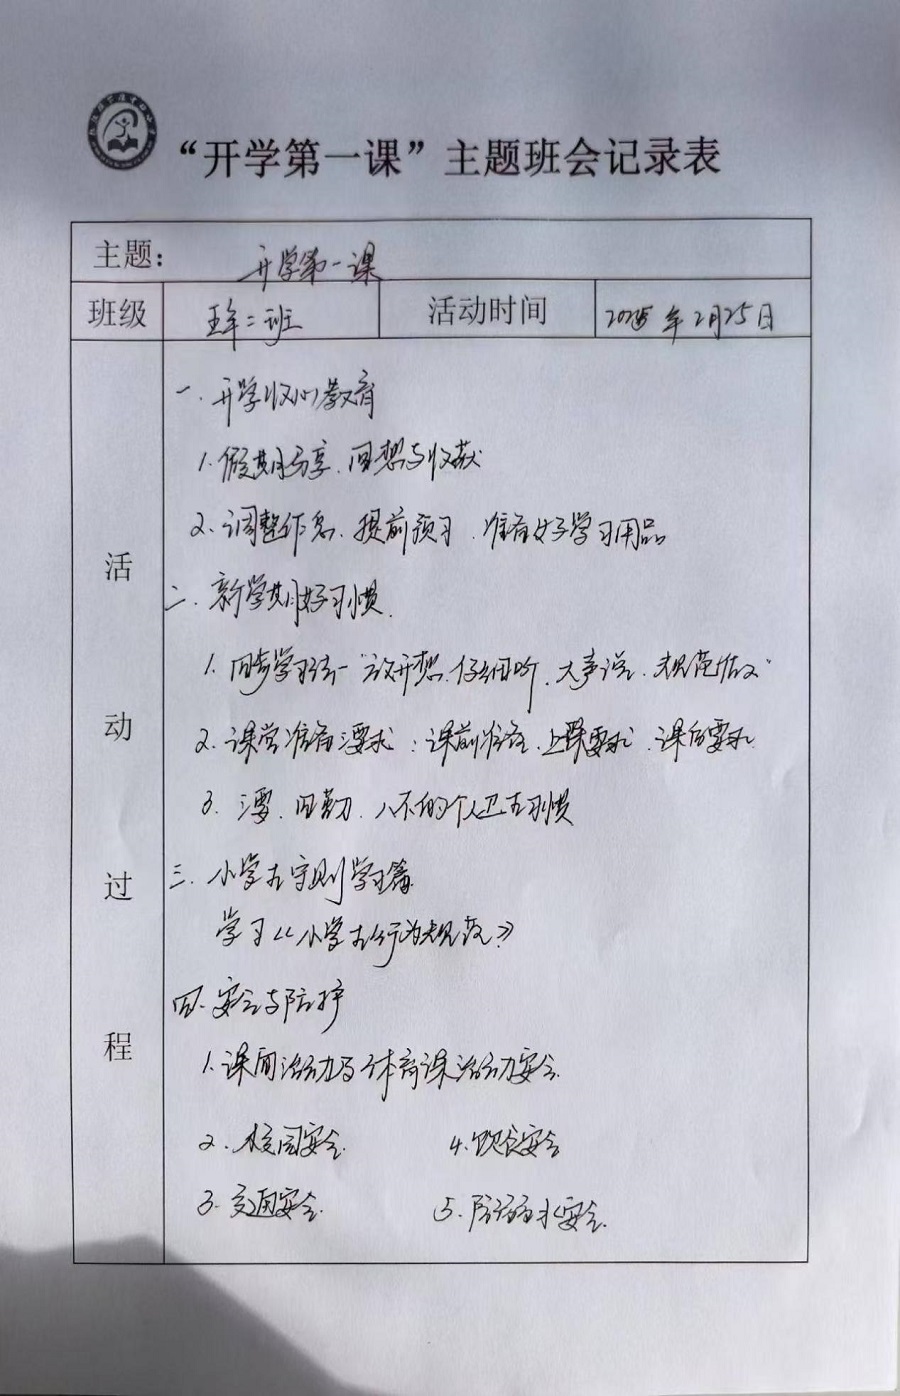 “开学第一课”主题班会记录表
主题: 开学第一课
班级 二班 活动时间 2025年2月25日
活动过程
一.开学收心教育
1.假期分享、回想与收获
2.调整作息、提前预习、准备好学习用品
二.新学期好习惯
1.同步学习法一“放开想、仔细听、大声说、规范做”
2.课堂准备要求:课前准备、上课要求、课后要求
3. 要、四勤、八不的个人卫生习惯
三.小学生守则学习篇
学习《小学生行为规范》
四.安全与防护
1.课间活动与体育课活动安全
2.校园安全 4.饮食安全
3.交通安全 5.防溺水安全